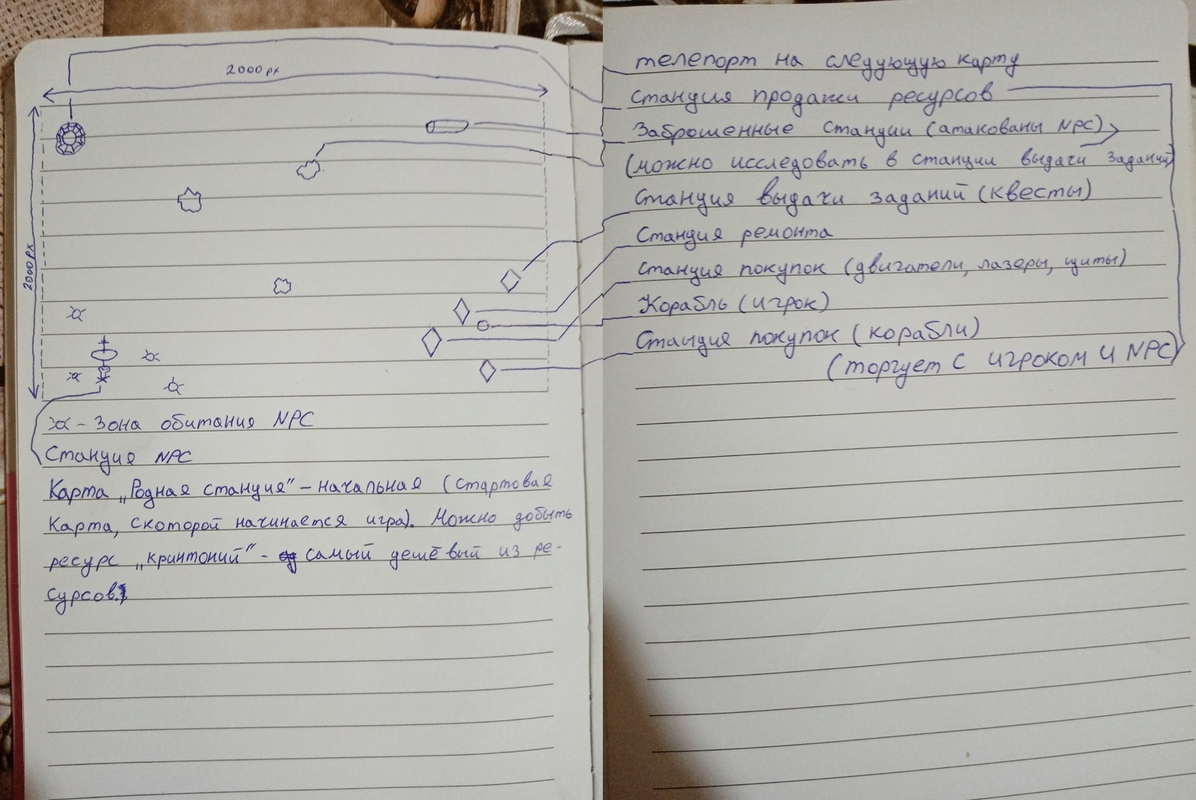 2000px
2000px
ӝ - Зона обитания NPC
Станция NPC
Карта „Родная станция" - начальная (Стартовая
Карта, с которой начинается игра). Можно добыть
ресурс „криптоний" - самый дешёвый из ре-
сурсов.
телепорт на следующую карту
Станция продажи ресурсов
Заброшенные Станции (атакованы NPC)
(можно исследовать в станции выдачи заданий
Станция выдачи заданий (квесты)
Станция ремонта
Станция покупок (двигатели, лазеры, щиты)
Корабль (игрок)
Станция покупок (корабли)
(торгует с игроком и NPC)